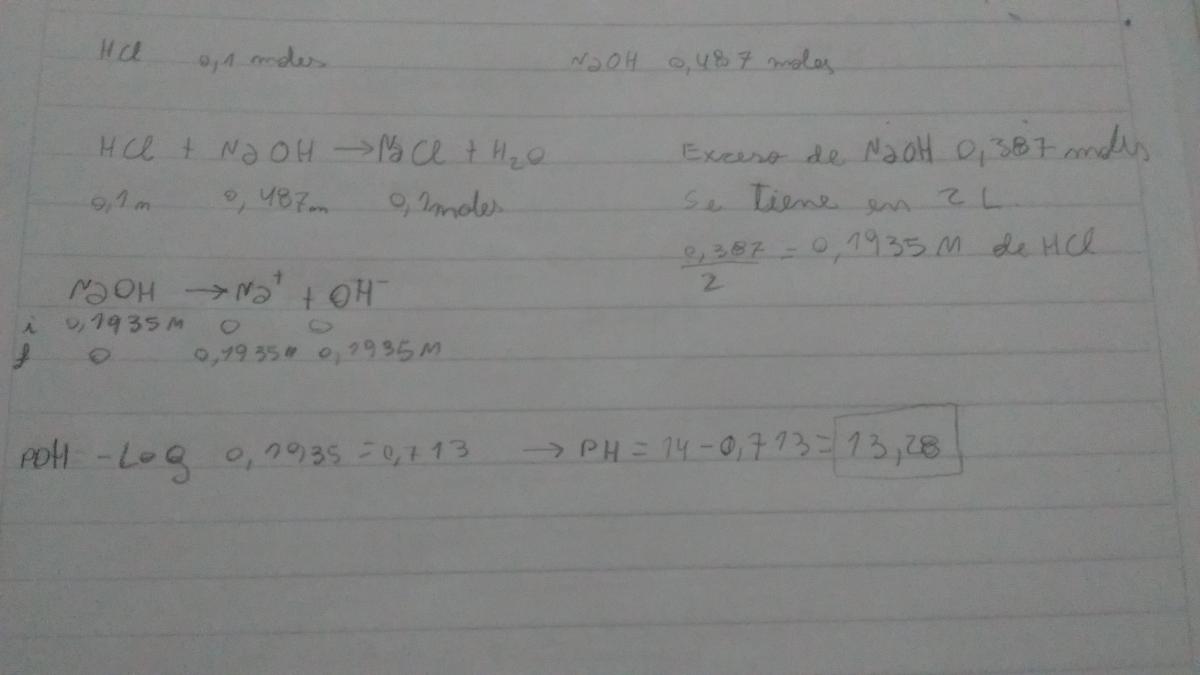 HCl 0,1 moles NaOH 0,487 moles
HCl + NaOH → NaCl + H2O Exceso de NaOH 0,387 moles
0,1m 0,487m 0,1moles Se tiene en 2 L
0,387/2 = 0,1935 M de HCl
NaOH → Na+ + OH-
i 0,1935 M 0 0
f 0 0,1935M 0,1935 M
POH -Log 0,1935 = 0,713 → PH = 14 - 0,713 = 13,28